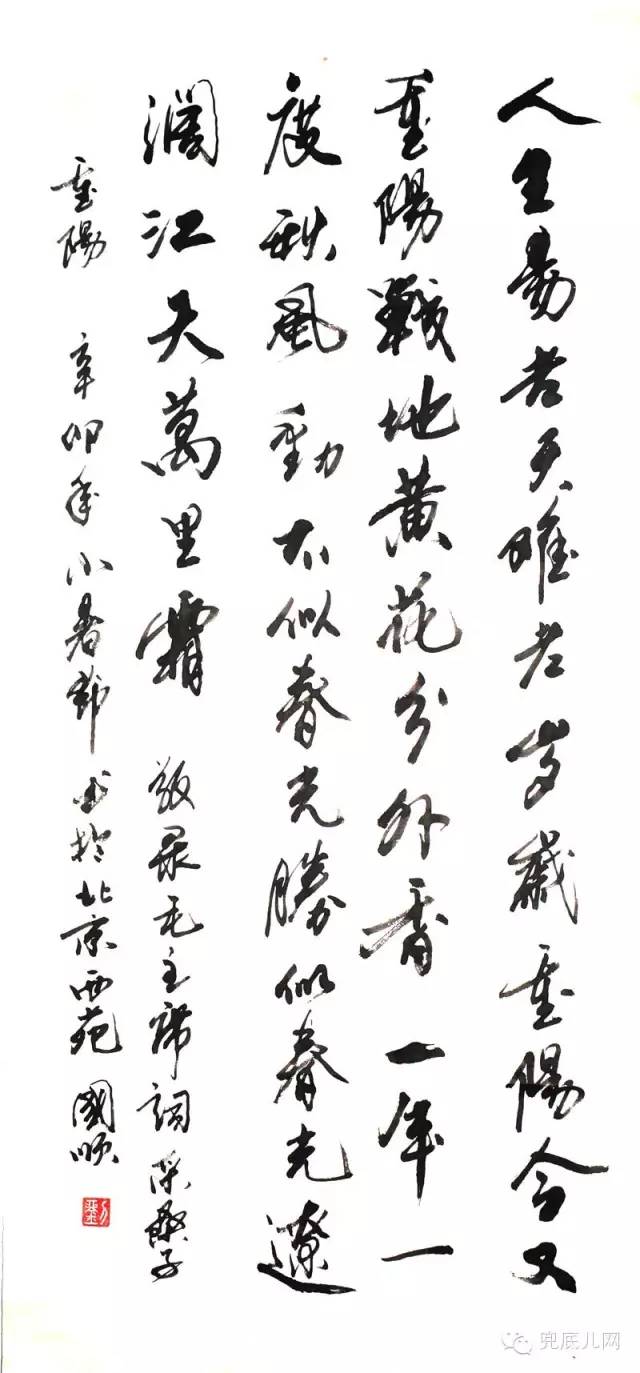 人生易老天难老岁岁重陽今又
重陽戰地黄花分外香一年一
度秋風勁不似春光勝似春光遼
濶江天萬里霜
敬录毛主席詞采桑子
重陽 辛卯年小暑節书於北京西苑 國順
兜底儿网